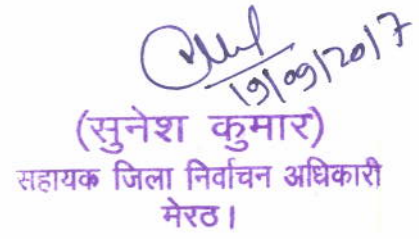 19/09/2017
(सुनेश कुमार)
सहायक जिला निर्वाचन अधिकारी
मेरठ।